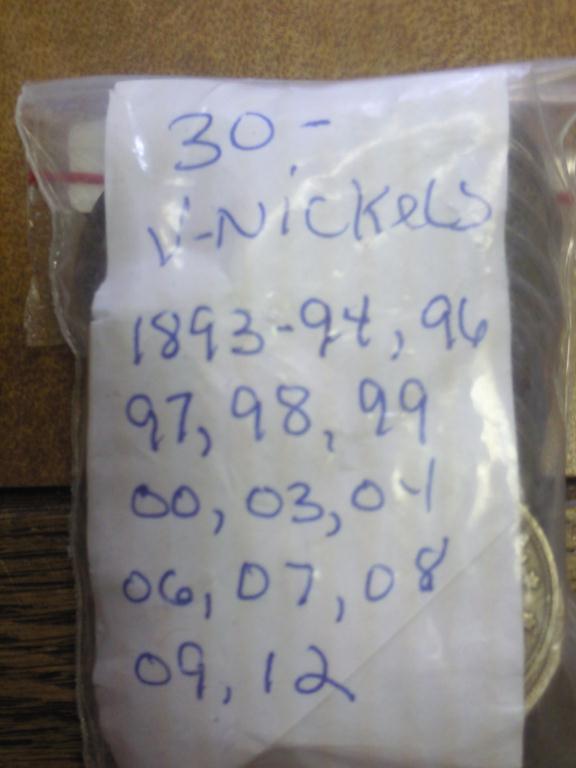 30-
V-Nickels
1893-94, 96
97, 98, 99
00, 03, 04
06, 07, 08
09, 12